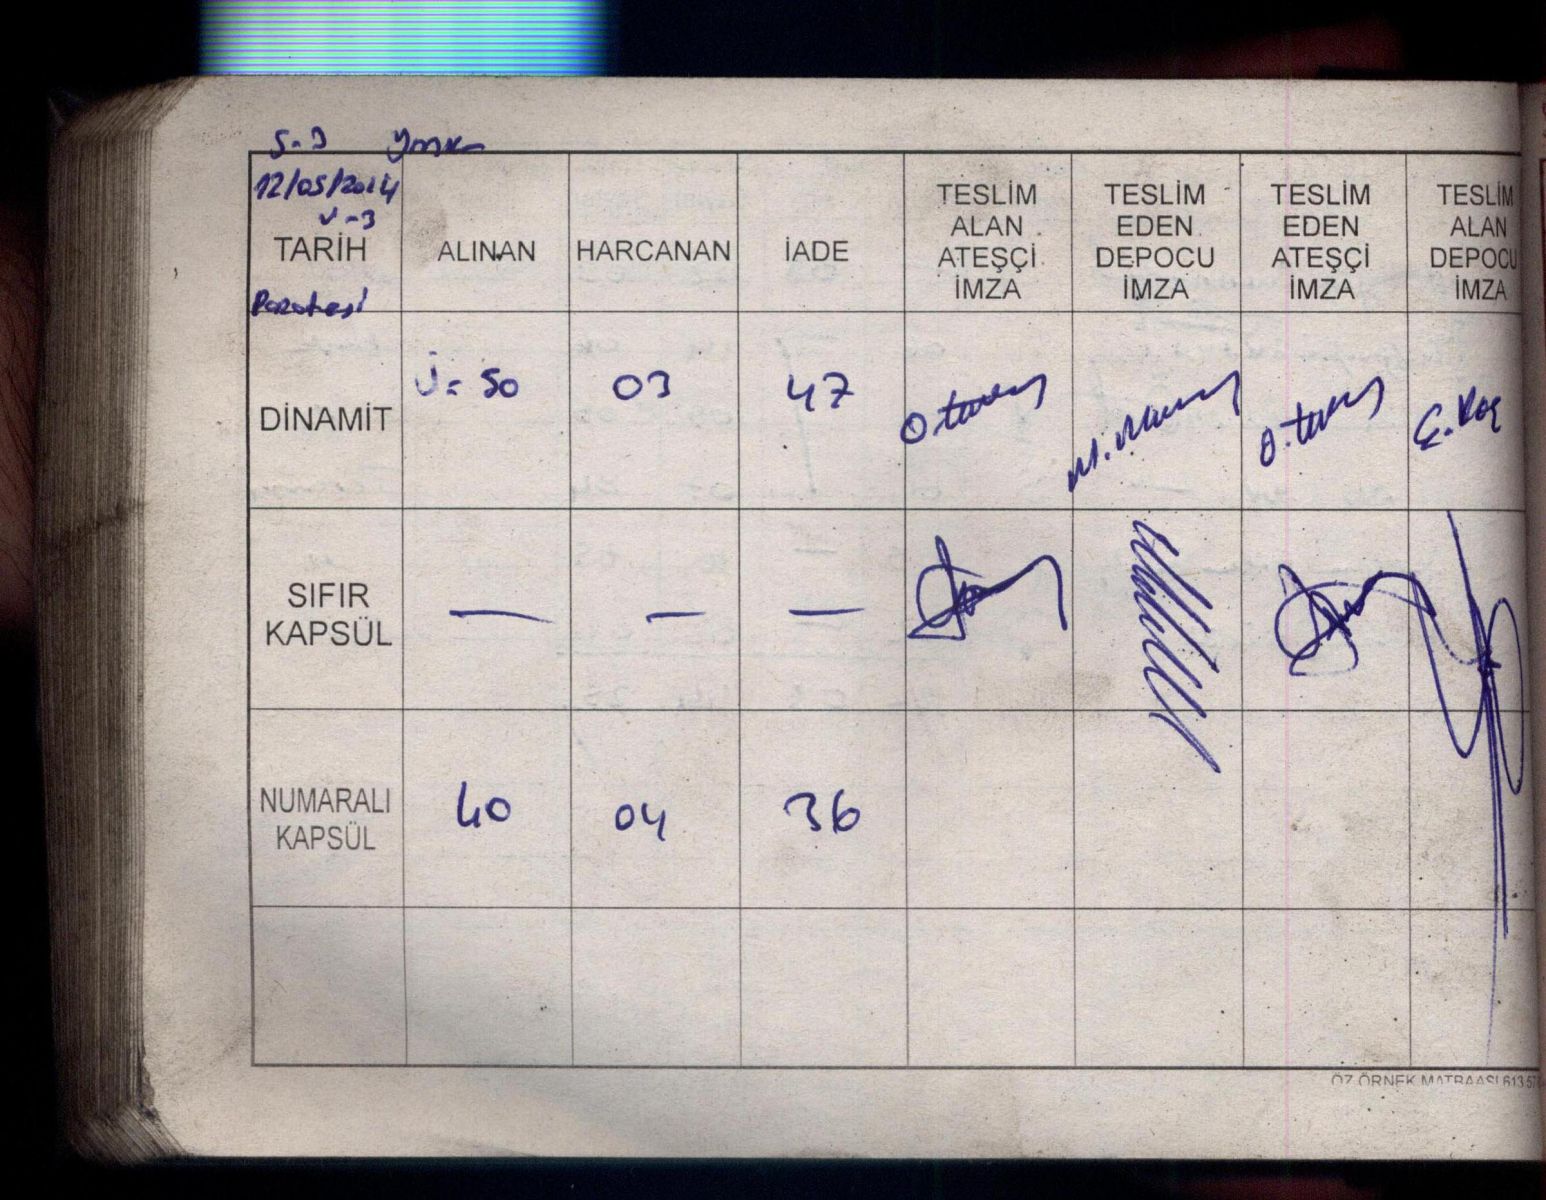 S-3
12/05/2014
V-3
TARİH ALINAN HARCANAN İADE TESLİM ALAN ATEŞÇİ İMZA TESLİM EDEN DEPOCU İMZA TESLİM EDEN ATEŞÇİ İMZA TESLİM ALAN DEPOCU İMZA
Pazartesi
DİNAMİT 50 03 47 E. Koç
SIFIR KAPSÜL — — —
NUMARALI KAPSÜL 40 04 36
ÖZ ÖRNEK MATBAASI 613 57